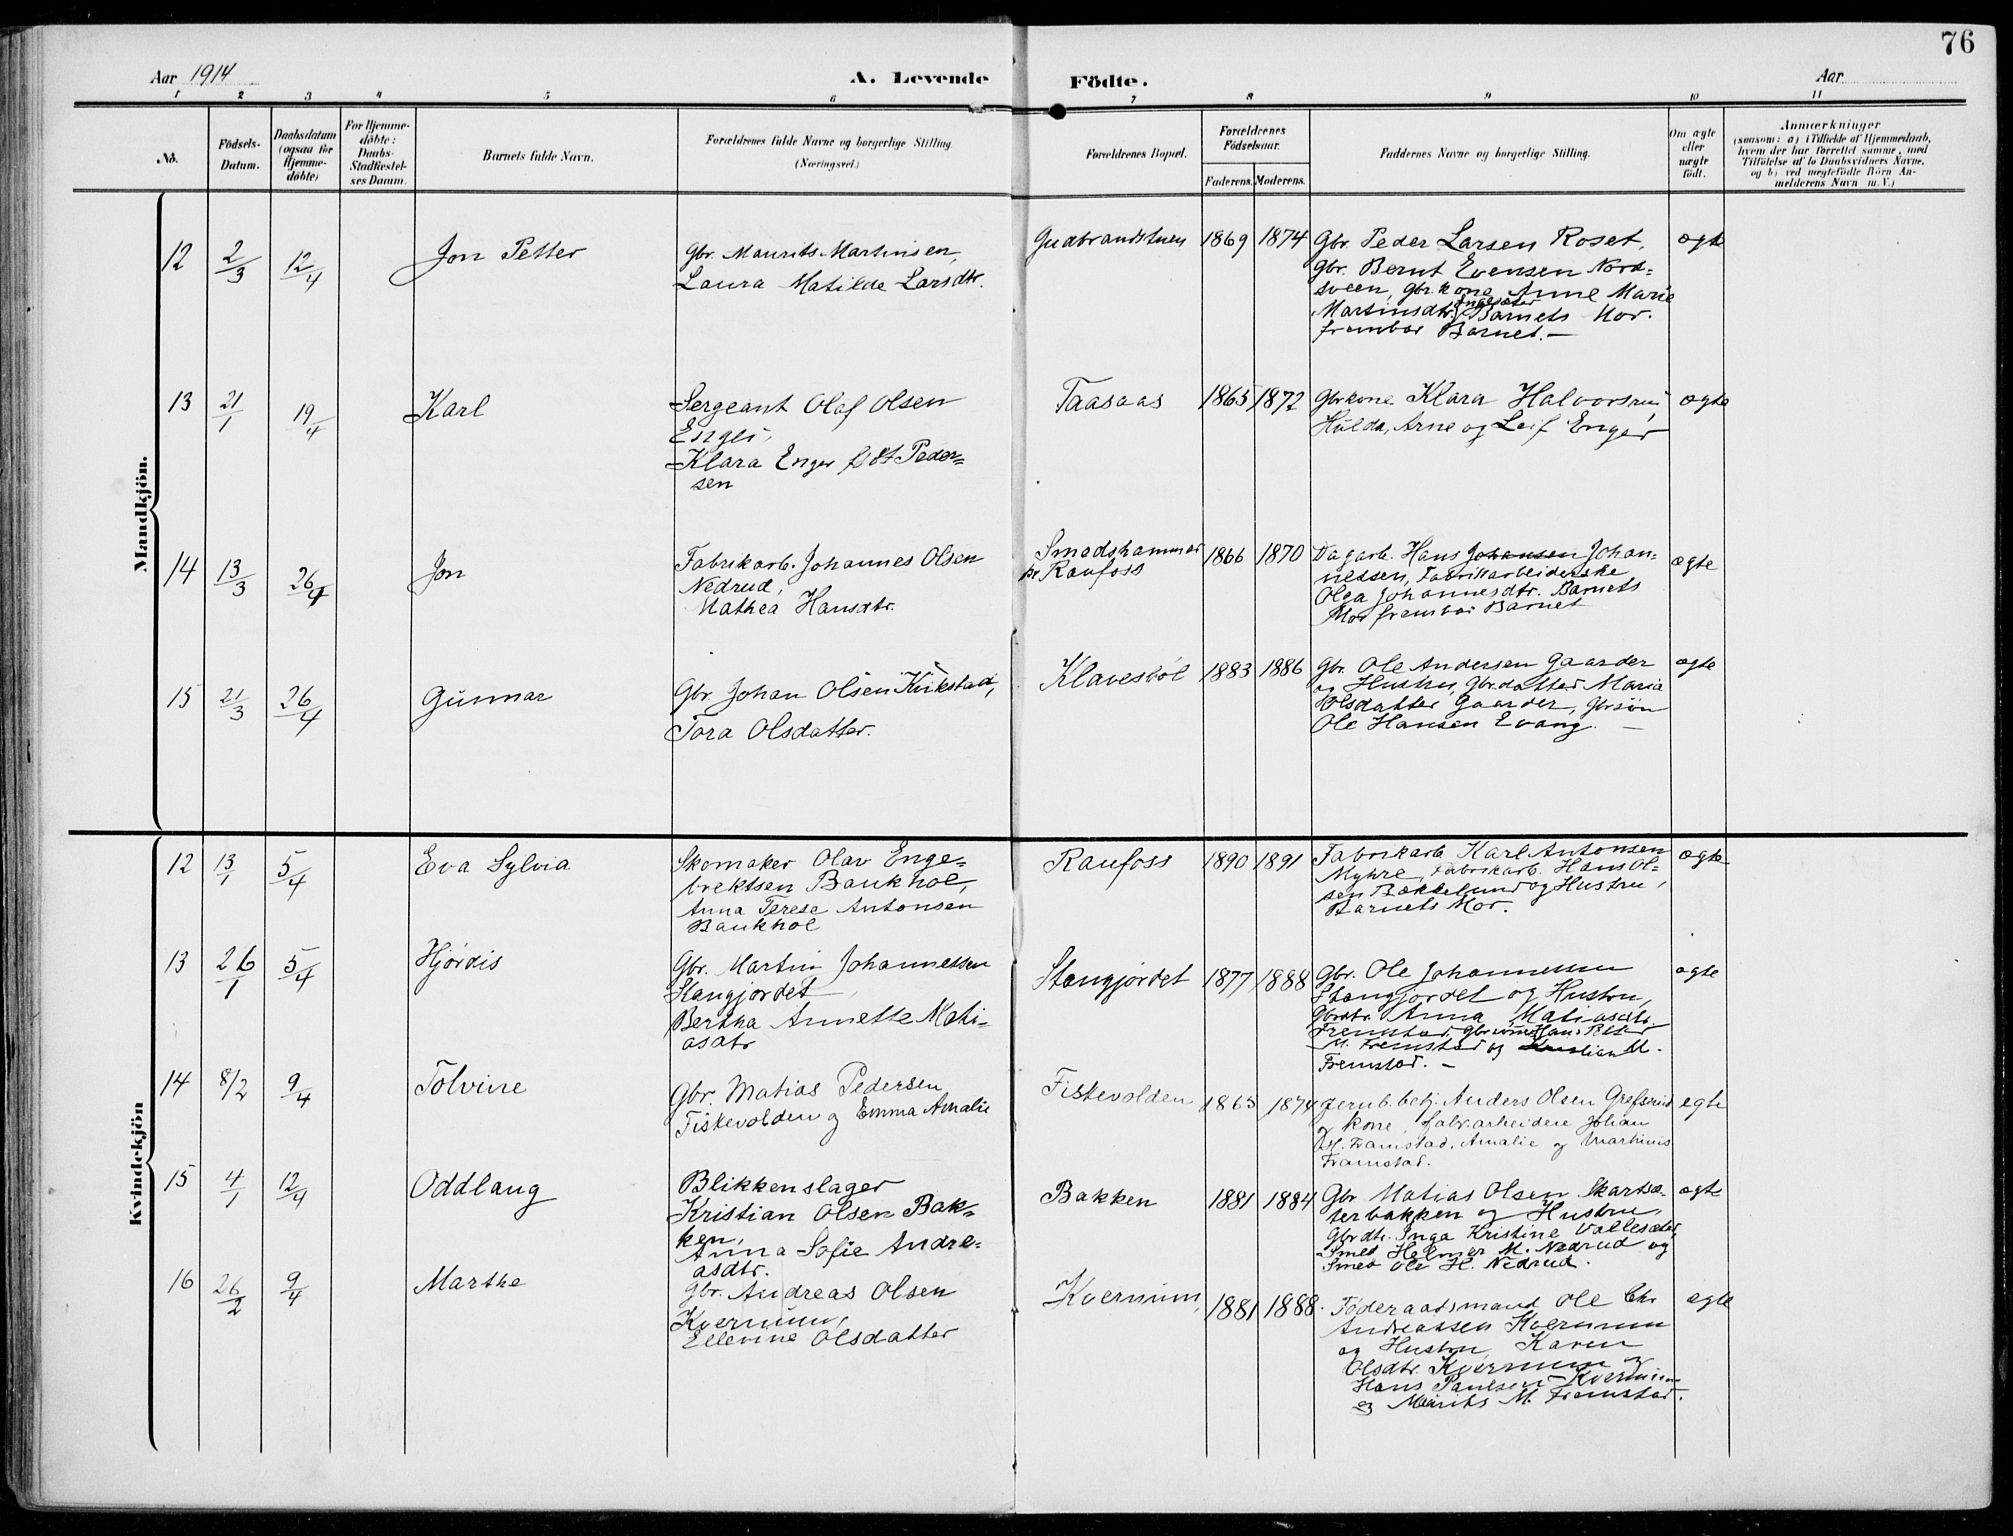 76
Aar 1914
A. Levende Födte.
Aar
1 2 3 4 5 6 7 8 9 10 11
No.
Födsels-Datum.
Daabsdatum (ogsaa for Hjemme-döbte)
For Hjemme-döbte: Daabs-Stadfestelses Datum.
Barnets fulde Navn.
Forældrenes fulde Navne og borgerlige Stilling. (Næringsvei.)
Forældrenes Bopæl.
Forældrenes Födselsaar.
Faderens. Moderens.
Faddernes Navne og borgerlige Stilling.
Om ægte eller uægte födt.
Anmærkninger
(saasom: a) i Tilfælde af Hjemmedaab,
hvem der har forrettet samme, med
Tilföielse af to Daabsvidners Navne,
og b) ved uægtefödte Börn An-
melderens Navn m. V.)
Mandkjön.
12 2/3 12/4 Jon Petter
Gbr. Maurits Martinsen,
Laura Matilde Larsdtr.
Gudbrandstuen 1869 1874
Gbr. Peder Larsen Roset,
Gbr. Bernt Evensen Nord=
sveen, gbr.kone Anne Marie
Martinsdtr. Barnets Mor.
frembar Barnet.—
ægte
13 21/1 19/4 Karl
Sergeant Olaf Olsen
Enger,
Klara Enger født Peder=
sen
Taasaas 1865 1872
Gbrkone Klara Halvorsrud
Hulda, Arne og Leif Enger
ægte
14 13/3 26/4 Jon
Fabrikarb. Johannes Olsen
Nedrud,
Mathea Hansdtr.
Smedshammer
pr Raufoss 1866 1870
Dagarb. Hans Johansen Johan=
nessen, Fabrikarbeiderske
Olga Johannesdtr. Barnets
Mor frembar Barnet
ægte
15 21/3 26/4 Gunnar
Gbr Johan Olsen Kirkstad,
Tora Olsdatter.
Klavesböl 1883 1886
Gbr. Ole Andersen Gaarder
og Hustru, Gbr.datter Maria
Olsdatter Gaarder, Gbrsön
Ole Hansen Evang. —
ægte
Kvindekjön
12 13/1 5/4 Eva Sylvia
Skomaker Olav Enge=
brektsen Baukhol,
Anna Terese Antonsen
Baukhol
Raufoss 1890 1891
Fabrikarb. Karl Antonsen
Myhre, Fabrikarb. Hans Ol=
sen Bækkelund og Hustru,
Barnets Mor.
ægte
13 26/1 5/4 Hjørdis
Gbr. Martin Johannessen
Stangjordet,
Bertha Annette Mati=
asdtr
Stangjordet 1877 1888
Gbr. Ole Johannessen
Stangjordet og Hustru,
Gbrdtr. Anna Matiasdtr.
Fremstad, Hans Petter
M. Fremstad og Kristian M.
Fremstad. —
ægte
14 8/2 9/4 Tolvine
Gbr. Matias Pedersen
Fiskevolden og Emma Amalie
Fiskevolden 1865 1874
Jernb.betj. Anders Olsen Grefsrud
og kone, fabr.arbeidere Johan
M. Framstad, Amalie og Martinus
Framstad.
egte
15 4/1 12/4 Oddlaug
Blikkenslager
Kristian Olsen Bak=
ken,
Anna Sofie Andre=
asdtr.
Bakken 1881 1884
Gbr Matias Olsen Skartsæ=
terbakken og Hustru,
Gbrdtr. Inga Kristine Vallesæter,
Smed Helmer M. Nedrud og
Smed Ole H. Nedrud.
ægte
16 26/2 9/4 Marthe
Gbr. Andreas Olsen
Kvernum,
Ellevine Olsdatter
Kvernum, 1881 1888.
Föderaadsmand Ole Chr
Andreassen Kvernum
og Hustru, Karen
Olsdtr. Kvernum og
Hans Paulsen Kvernum
og Maurits M. Framstad.
ægte